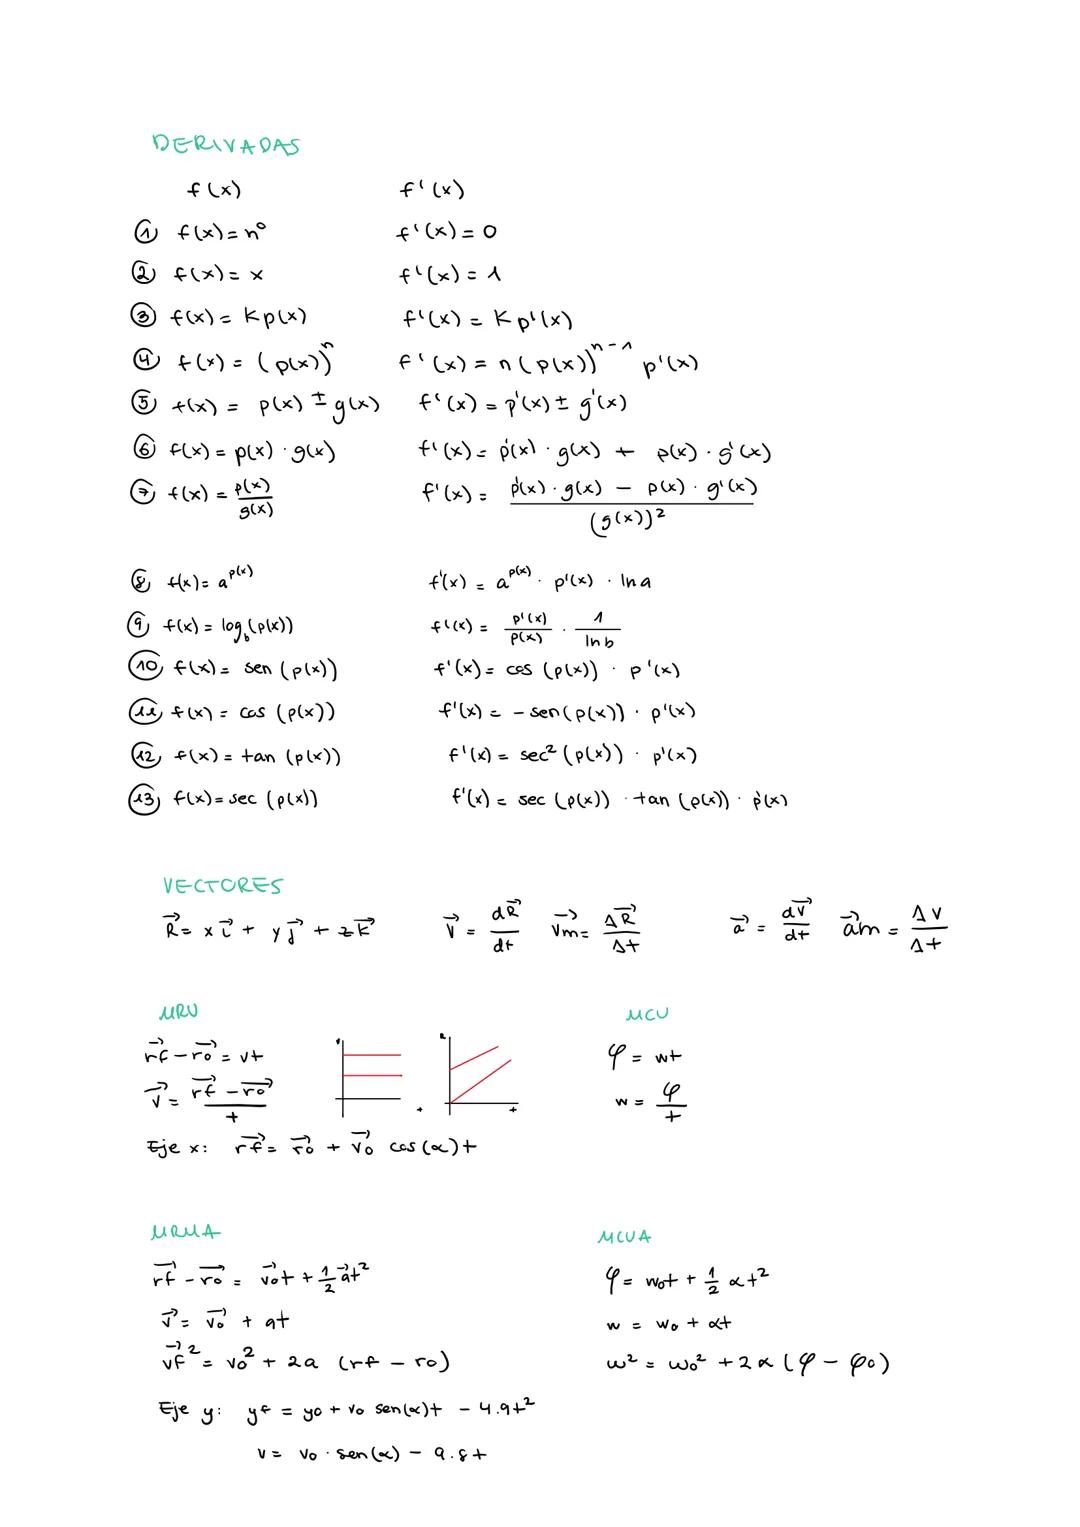 DERIVADAS
f(x) f'(x)
① f(x) = nº f'(x) = 0
② f(x) = x f'(x) = 1
③ f(x) = K p(x) f'(x) = K p'(x)
④ f(x) = (p(x))^n f'(x) = n(p(x))^{n-1} p'(x)
⑤ f(x) = p(x) ± g(x) f'(x) = p'(x) ± g'(x)
⑥ f(x) = p(x) · g(x) f'(x) = p'(x) · g(x) + p(x) · g'(x)
⑦ f(x) = p(x)/g(x) f'(x) = (p'(x) · g(x) − p(x) · g'(x))/(g(x))²
⑧ f(x) = a^{p(x)} f'(x) = a^{p(x)} · p'(x) · ln a
⑨ f(x) = log_b (p(x)) f'(x) = p'(x)/p(x) · 1/ln b
⑩ f(x) = sen (p(x)) f'(x) = cos (p(x)) · p'(x)
⑪ f(x) = cos (p(x)) f'(x) = − sen(p(x)) · p'(x)
⑫ f(x) = tan (p(x)) f'(x) = sec² (p(x)) · p'(x)
⑬ f(x) = sec (p(x)) f'(x) = sec (p(x)) · tan (p(x)) · p'(x)
VECTORES
R⃗ = x i⃗ + y j⃗ + z k⃗ v⃗ = dR⃗/dt v⃗m = ΔR⃗/Δt a⃗ = dv⃗/dt a⃗m = Δv/Δt
MRU MCU
r⃗f − r⃗o = vt v R φ = wt
v⃗ = (r⃗f − r⃗o)/t t t w = φ/t
Eje x: r⃗f = r⃗o + v⃗o cos(α)t
MRUA MCUA
r⃗f − r⃗o = v⃗ot + ½ a⃗t² φ = wot + ½ αt²
v⃗ = v⃗o + at w = wo + αt
v⃗f² = vo² + 2a (rf − ro) w² = wo² + 2α(φ − φo)
Eje y: yf = yo + vo sen(α)t − 4.9t²
v = vo · sen(α) − 9.8t